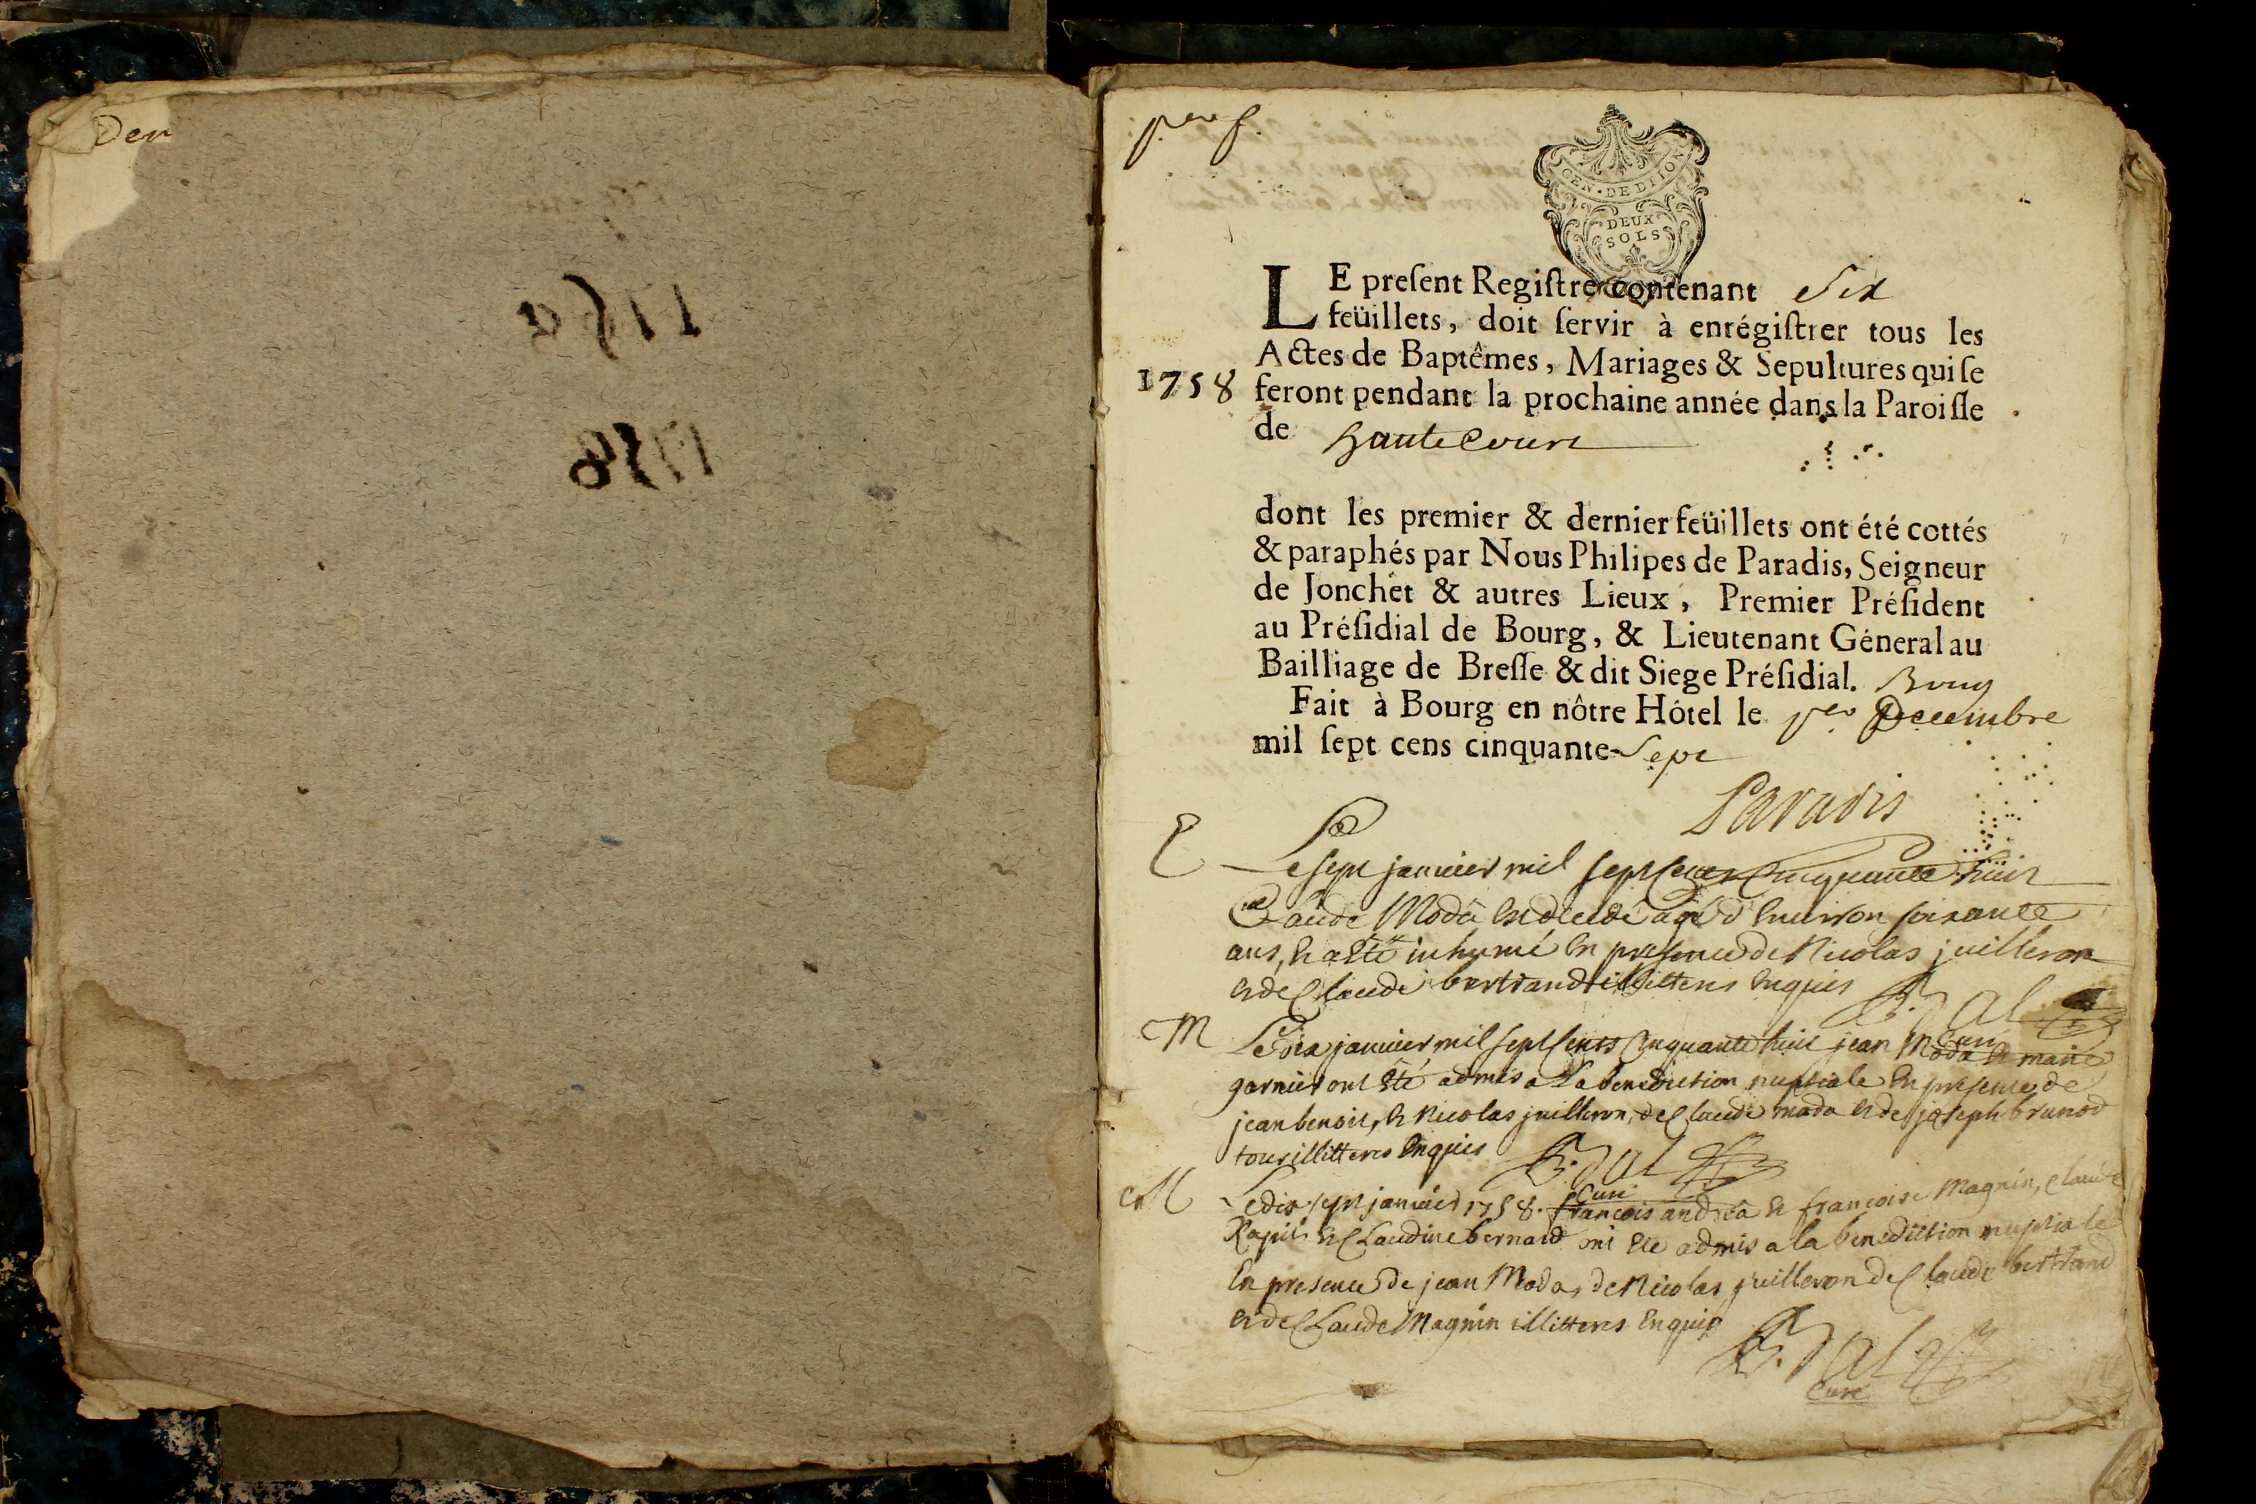 Der
1758
per f.
GEN · DE DIION
DEUX
SOLS
LE preſent Regiſtre contenant Six
feüillets, doit ſervir à enrégiſtrer tous les
Actes de Baptêmes, Mariages & Sepultures qui ſe
1758 feront pendant la prochaine année dans la Paroiſſe
de hautecourt
dont les premier & dernier feüillets ont été cottés
& paraphés par Nous Philipes de Paradis, Seigneur
de Jonchet & autres Lieux, Premier Préſident
au Préſidial de Bourg, & Lieutenant Géneral au
Bailliage de Breſſe & dit Siege Préſidial. Bourg
Fait à Bourg en nôtre Hôtel le per Decembre
mil ſept cens cinquante-Sept
Paradis
Le sept janvier mil sept cents Cinquante huit
Claude Moda est decedé agé d'environ soixante
ans, et a eté inhumé en presence de Nicolas juilleron
et de Claude bertrand illitteres enquis
M Le dix janvier mil sept cents Cinquante huit jean Moda et marie
Curé
garnier ont eté admis a La benediction nuptiale en presence de
jean benoit, et Nicolas juilleron, de Claude moda et de joseph brunod
tous illitteres enquis
Curé
M Le dix sept janvier 1758. francois andrea et francoise Magnin, claude
et Claudine bernard ont eté admis a la benediction nuptiale
en presence de jean Moda, de Nicolas juilleron de Claude bertrand
et de Claude Magnin illitteres enquis
Curé